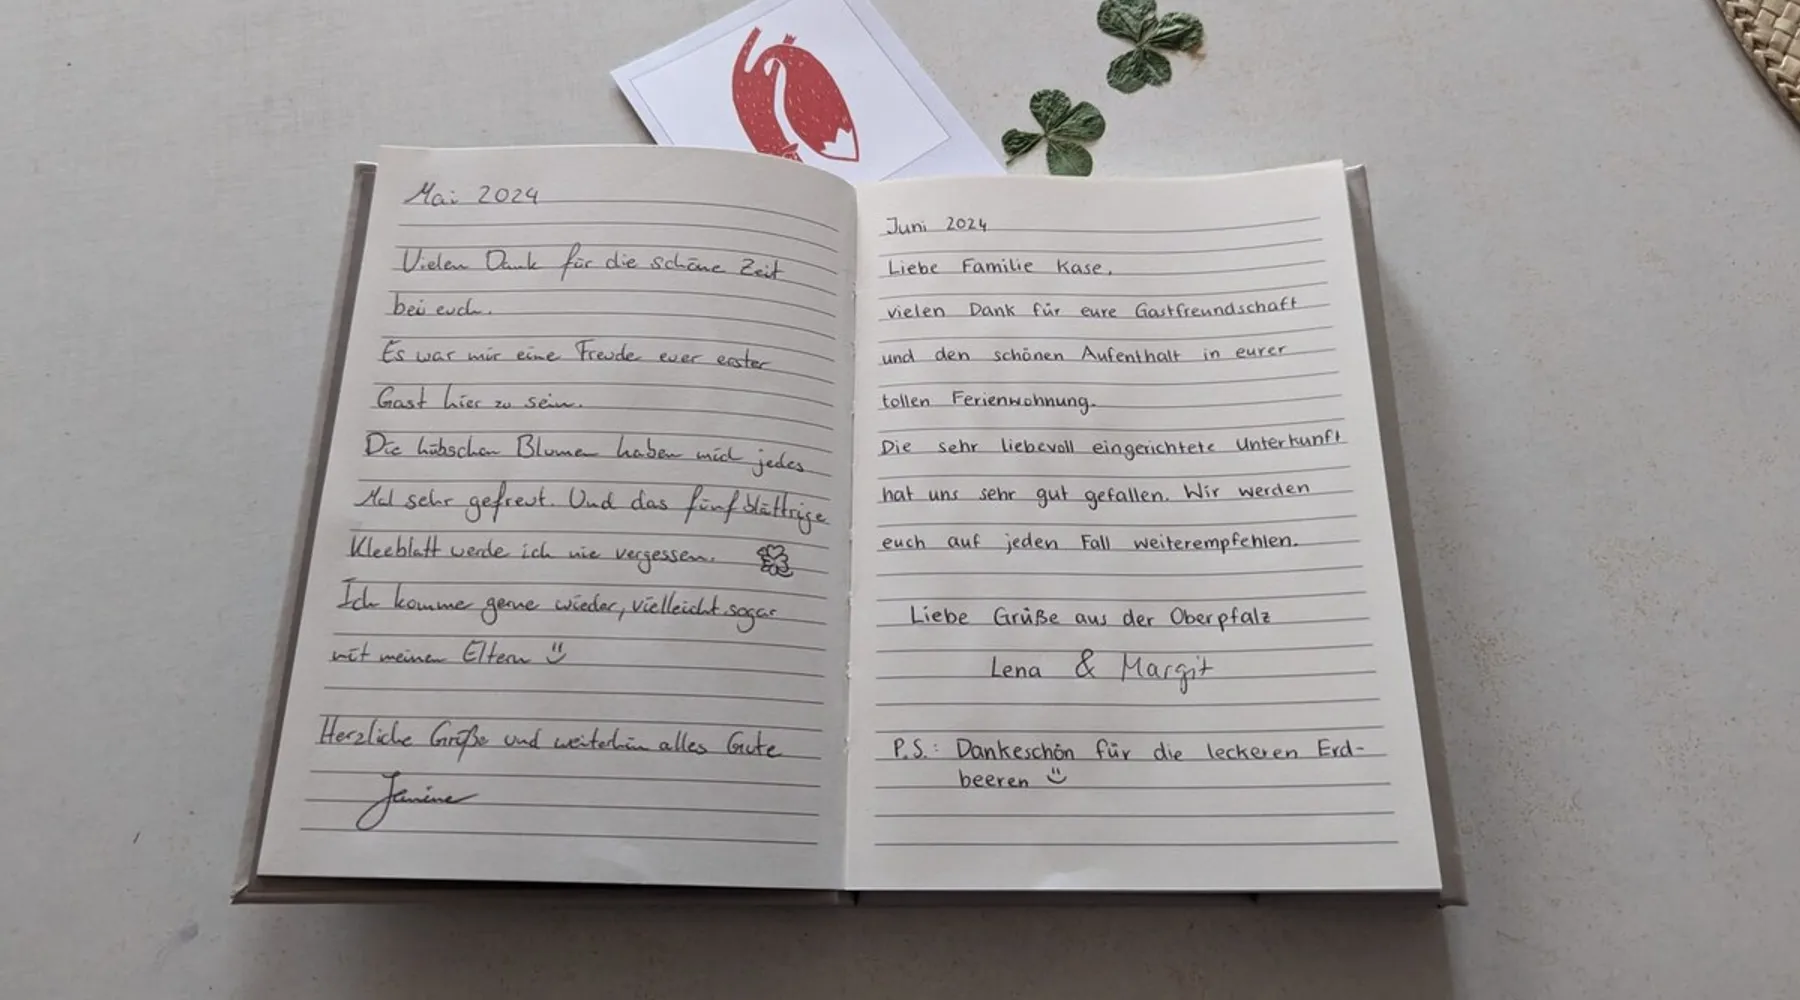 Mai 2024
Vielen Dank für die schöne Zeit
bei euch.
Es war mir eine Freude euer erster
Gast hier zu sein.
Die hübschen Blumen haben mich jedes
Mal sehr gefreut. Und das fünfblättrige
Kleeblatt werde ich nie vergessen.
Ich komme gerne wieder, vielleicht sogar
mit meinen Eltern
Herzliche Grüße und weiterhin alles Gute
Janine
Juni 2024
Liebe Familie Kase,
vielen Dank für eure Gastfreundschaft
und den schönen Aufenthalt in eurer
tollen Ferienwohnung.
Die sehr liebevoll eingerichtete Unterkunft
hat uns sehr gut gefallen. Wir werden
euch auf jeden Fall weiterempfehlen.
Liebe Grüße aus der Oberpfalz
Lena & Margit
P.S.: Dankeschön für die leckeren Erd-
beeren